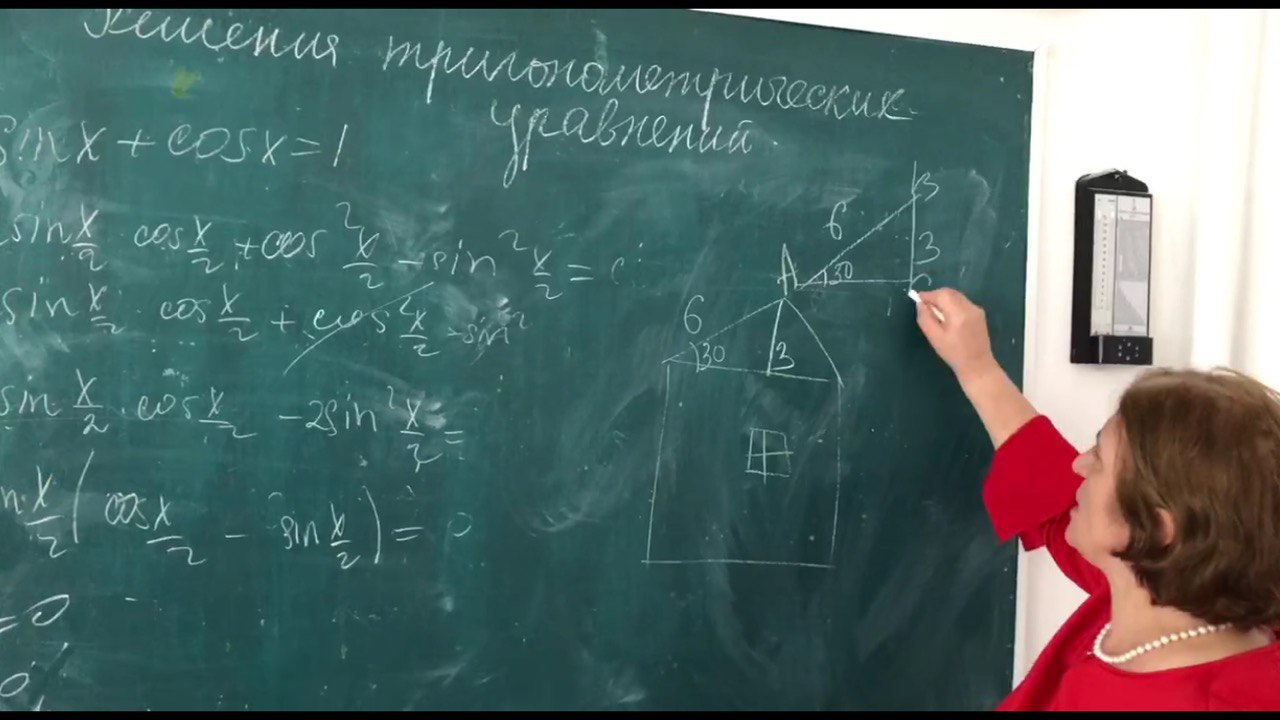 Решения тригонометрических
уравнений.
sinx + cosx = 1
sin x/2 cos x/2 + cos² x/2 - sin² x/2 =
sin x/2 cos x/2 + cos² x/2 - sin²
sin x/2 · cos x/2 - 2sin² x/2 =
x/2 ( cos x/2 - sin x/2 ) = 0
= 0
0
B
6
3
A
30
6
30
3